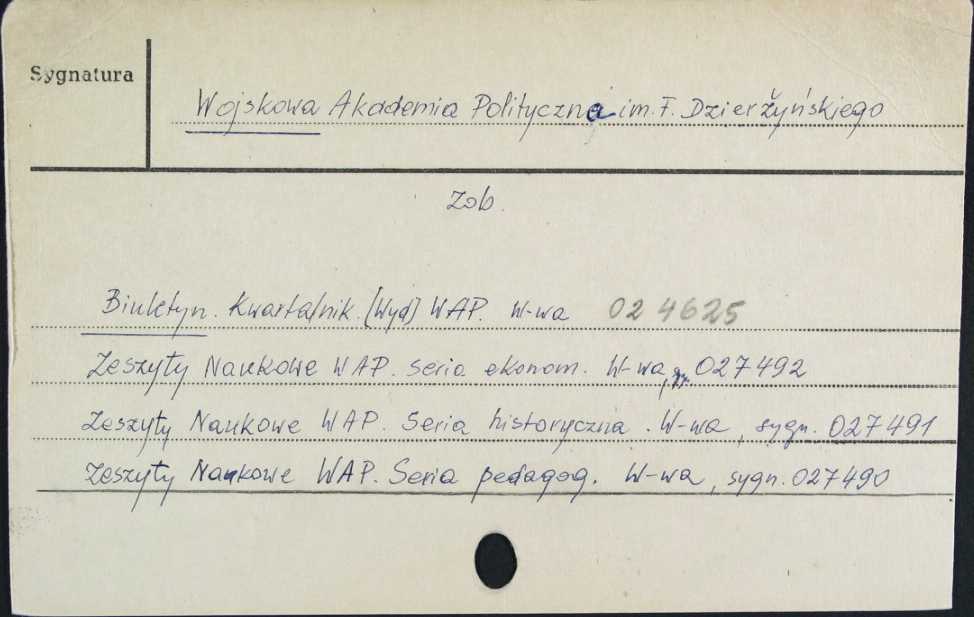 Sygnatura
Wojskowa Akademia Polityczna im. F. Dzierżyńskiego
Zob.
Biuletyn. Kwartalnik. [Wyd] WAP. W-wa 024625
Zeszyty Naukowe WAP. Seria ekonom. W-wa, 027492
Zeszyty Naukowe WAP. Seria historyczna. W-wa, sygn. 027491
Zeszyty Naukowe WAP. Seria pedagog. W-wa, sygn. 027490